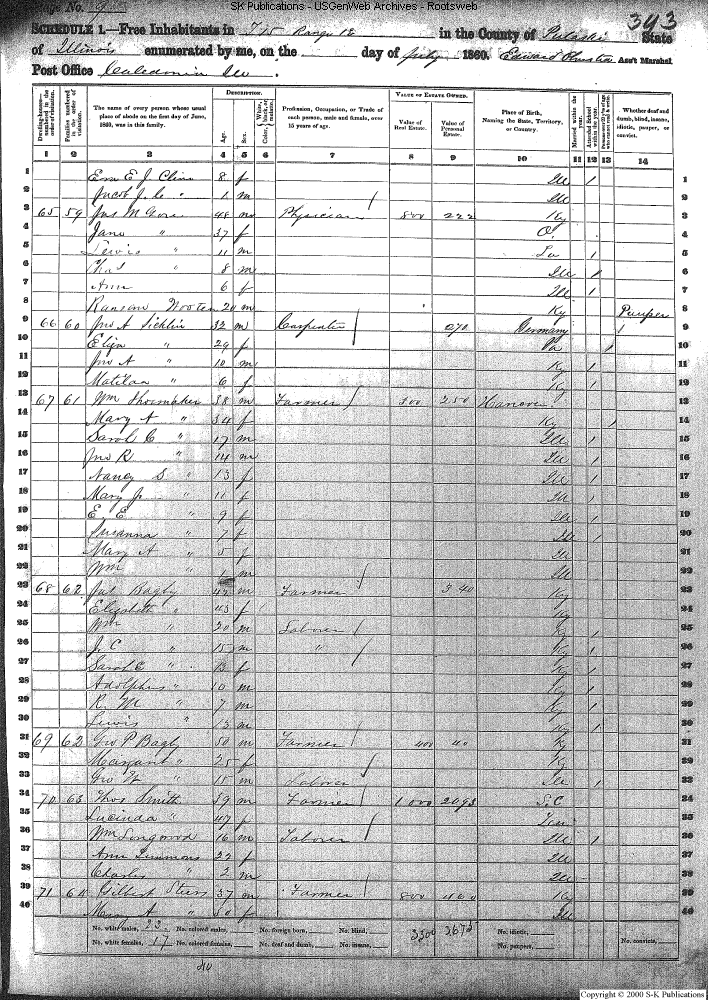 SK Publications - USGenWeb Archives - Rootsweb
Page No. 9
343
SCHEDULE 1.—Free Inhabitants in T15 Range 1E in the County of Pulaski State
of Illinois enumerated by me, on the day of July 1860. Edward Ass't Marshal.
Post Office Caledonia Ills.
Dwelling-houses—numbered in the order of visitation.
Families numbered in the order of visitation.
The name of every person whose usual place of abode on the first day of June, 1860, was in this family.
DESCRIPTION.
Age.
Sex.
Color, White, black, or mulatto.
Profession, Occupation, or Trade of each person, male and female, over 15 years of age.
VALUE OF ESTATE OWNED.
Value of Real Estate.
Value of Personal Estate.
Place of Birth, Naming the State, Territory, or Country.
Married within the year.
Attended School within the year.
Whether deaf and dumb, blind, insane, idiotic, pauper, or convict.
1 2 3 4 5 6 7 8 9 10 11 12 13 14
1 E. J. Cline 8 f Ill / 1
2 Jacob J. C. " 1 m Ill 2
3 65 59 Jas M Gore 48 m Physician 800 222 Ky 3
4 Jane " 37 f O. 4
5 Lewis " 11 m / 5
6 Thos " 8 m Ill / 6
7 Ann 6 f Ill / 7
8 Ransom Wooten 20 m Ky Pauper 8
9 66 60 Jno A 32 m Carpenter 270 Germany / 9
10 Eliza " 29 f Pa / 10
11 Jno A " 10 m Ky / 11
12 Matilda " 6 f Ky / 12
13 67 61 Wm Shoemaker 38 m Farmer 300 250 Hanover 13
14 Mary A " 34 f Ky / 14
15 Sarah C " 17 m Ill / 15
16 Jno R " 14 m Ill / 16
17 Nancy S " 13 f Ill / 17
18 Mary J " 11 f Ill / 18
19 E. E " 9 f Ill / 19
20 Susanna " 7 f Ill / 20
21 Mary A " 5 f Ill 21
22 Wm " 1 m Ill 22
23 68 62 Jas Bagby 42 m Farmer 340 Ky 23
24 Elizabeth " 43 f Ky 24
25 Wm " 20 m Laborer Ky / 25
26 J. C " 15 m " Ky / 26
27 Sarah C " 13 f Ky / 27
28 Adolphus " 10 m Ky / 28
29 R. M " 7 m Ky / 29
30 Lewis " 13 m Ky / 30
31 69 62 Geo P Bagby 50 m Farmer 400 40 Ky 31
32 Margaret " 25 f Ky 32
33 Geo W " 15 m Laborer / 33
34 70 63 Thos Smith 59 m Farmer 1000 2093 S.C 34
35 Lucinda " 47 f 35
36 Wm 16 m Laborer Ill / 36
37 Ann Simmons 22 f Ill 37
38 Charles " 2 m Ill 38
39 71 64 Gilbert 37 m Farmer 800 460 Ky 39
40 Mary A " 30 f Ill 40
No. white males, 23. No. colored males, No. foreign born, No. blind, 3300 3675 No. idiotic,
No. white females, 17 No. colored females, No. deaf and dumb, No. insane, No. paupers, No. convicts,
Copyright © 2000 S-K Publications